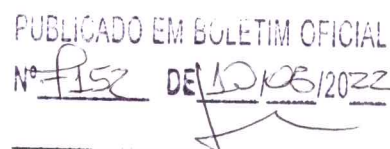 PUBLICADO EM BOLETIM OFICIAL
Nº 7152 DE 10/06/2022